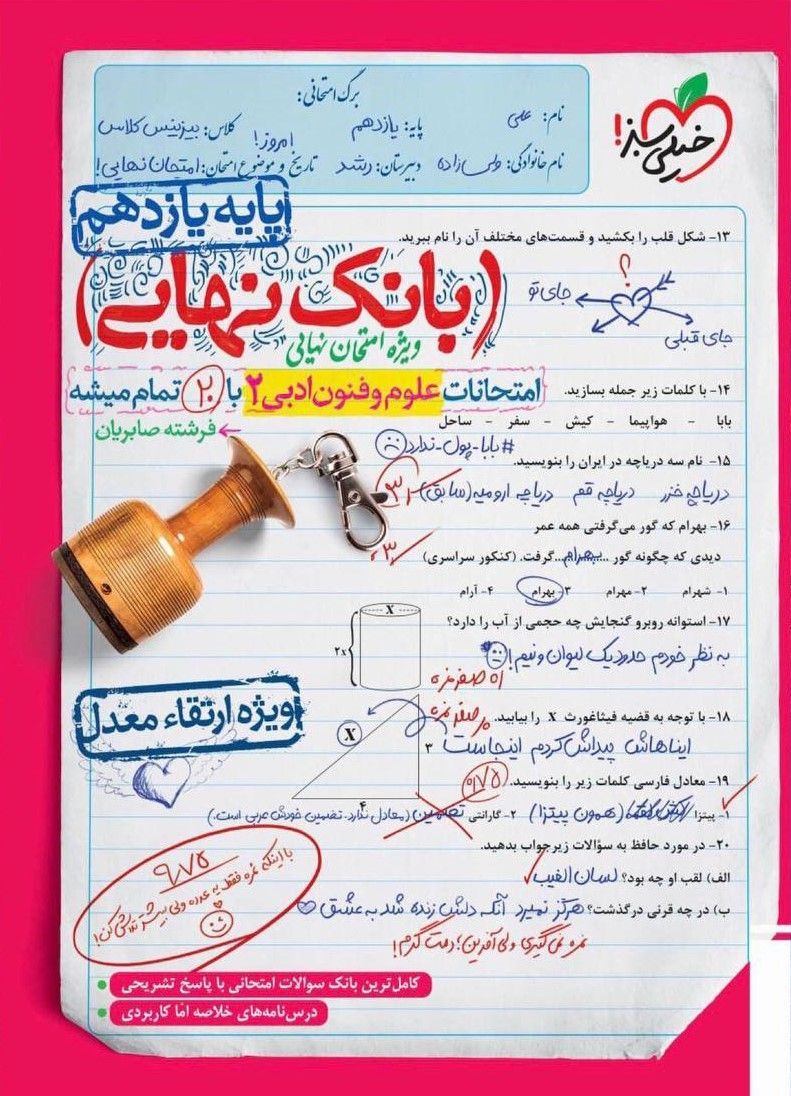 خیلی سبز!
برگ امتحانی:
نام: علی
پایه: یازدهم
کلاس: بیزینس کلاس
نام خانوادگی: ولی‌زاده
دبیرستان: رشد
تاریخ و موضوع امتحان: امروز! امتحان نهایی!
پایه یازدهم
(بانک نهایی)
ویژه امتحان نهایی
امتحانات علوم و فنون ادبی ۲ با ۲۰ تمام میشه
فرشته صابریان
۱۳- شکل قلب را بکشید و قسمت‌های مختلف آن را نام ببرید.
؟
جای تو
جای قبلی
۱۴- با کلمات زیر جمله بسازید.
بابا - هواپیما - کیش - سفر - ساحل
#بابا_پول_ندارد
۱۵- نام سه دریاچه در ایران را بنویسید.
دریاچه خزر دریاچه قم دریاچه ارومیه (سابق)
۱۶- بهرام که گور می‌گرفتی همه عمر
دیدی که چگونه گور ...بهرام... گرفت. (کنکور سراسری)
۱- شهرام ۲- مهرام ۳- بهرام ۴- آرام
۱۷- استوانه روبرو گنجایش چه حجمی از آب را دارد؟
X
۲x
به نظر خودم حدود یک لیوان و نیم!
اه صفر مزه
۱۸- با توجه به قضیه فیثاغورث X را بیابید.
صفر مزه
ایناهاش پیداش کردم اینجاست
X
۳
۴
۱۹- معادل فارسی کلمات زیر را بنویسید.
۰/۷۵
۱- پیتزا (همون پیتزا) ۲- گارانتی تضمین (معادل ندارد. تضمین خودش عربی است.)
۲۰- در مورد حافظ به سؤالات زیر جواب بدهید.
الف) لقب او چه بود؟ لسان الغیب
ب) در چه قرنی درگذشت؟ هرگز نمیرد آنکه دلش زنده شد به عشق
نمره نمی‌گیری ولی آفرین؛ دمت گرم!
ویژه ارتقاء معدل
۹/۷۵
با اینکه نمره فقط یه عدده ولی بیشتر تلاش کن!
کامل‌ترین بانک سوالات امتحانی با پاسخ تشریحی
درس‌نامه‌های خلاصه امّا کاربردی